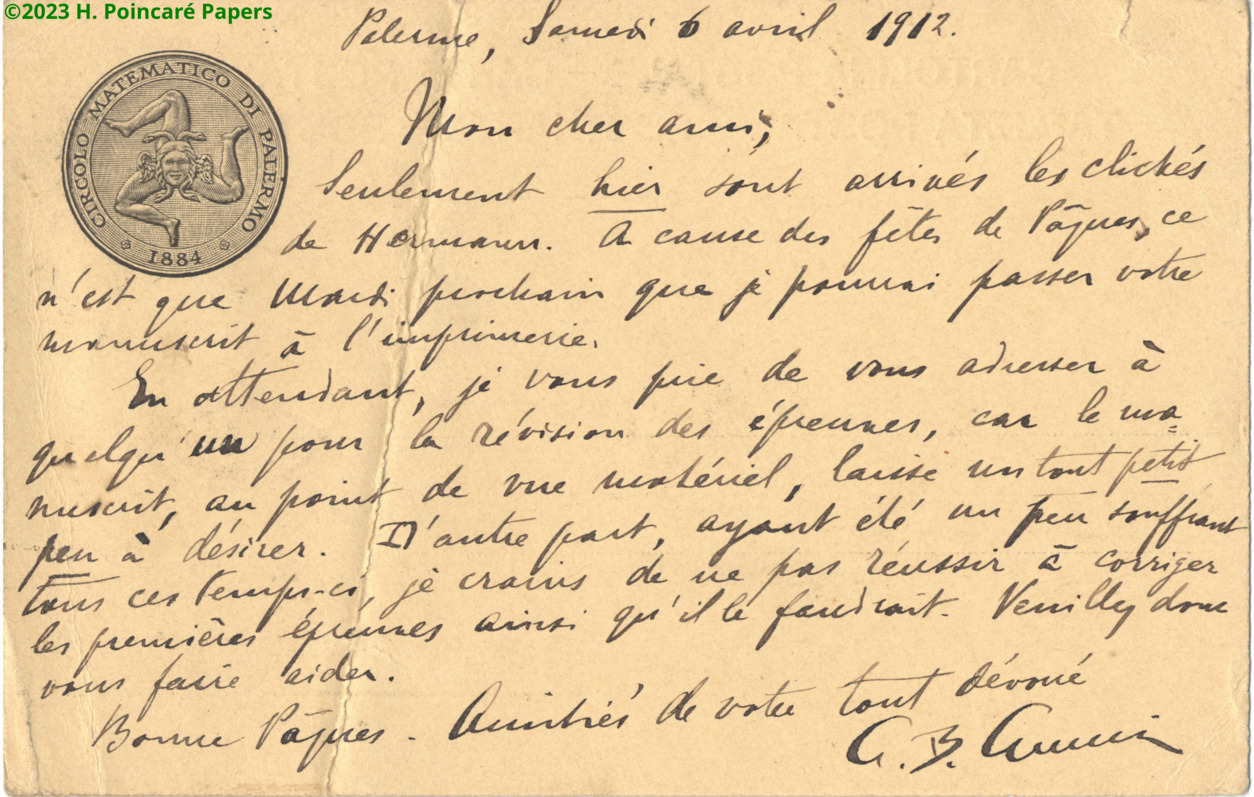 ©2023 H. Poincaré Papers
Palerme, Samedi 6 avril 1912.
CIRCOLO MATEMATICO DI PALERMO
1884
Mon cher ami,
Seulement hier sont arrivés les clichés
de Hermann. A cause des fêtes de Pâques, ce
n'est que Mardi prochain que je pourrai passer votre
manuscrit à l'imprimerie.
En attendant, je vous prie de vous adresser à
quelqu'un pour la révision des épreuves, car le ma=
nuscrit, au point de vue matériel, laisse un tout petit
peu à désirer. D'autre part, ayant été un peu souffrant
tous ces temps-ci, je crains de ne pas réussir à corriger
les premières épreuves ainsi qu'il le faudrait. Veuillez donc
vous faire aider.
Bonne Pâques. Amitiés de votre tout dévoué
G. B. Guccia